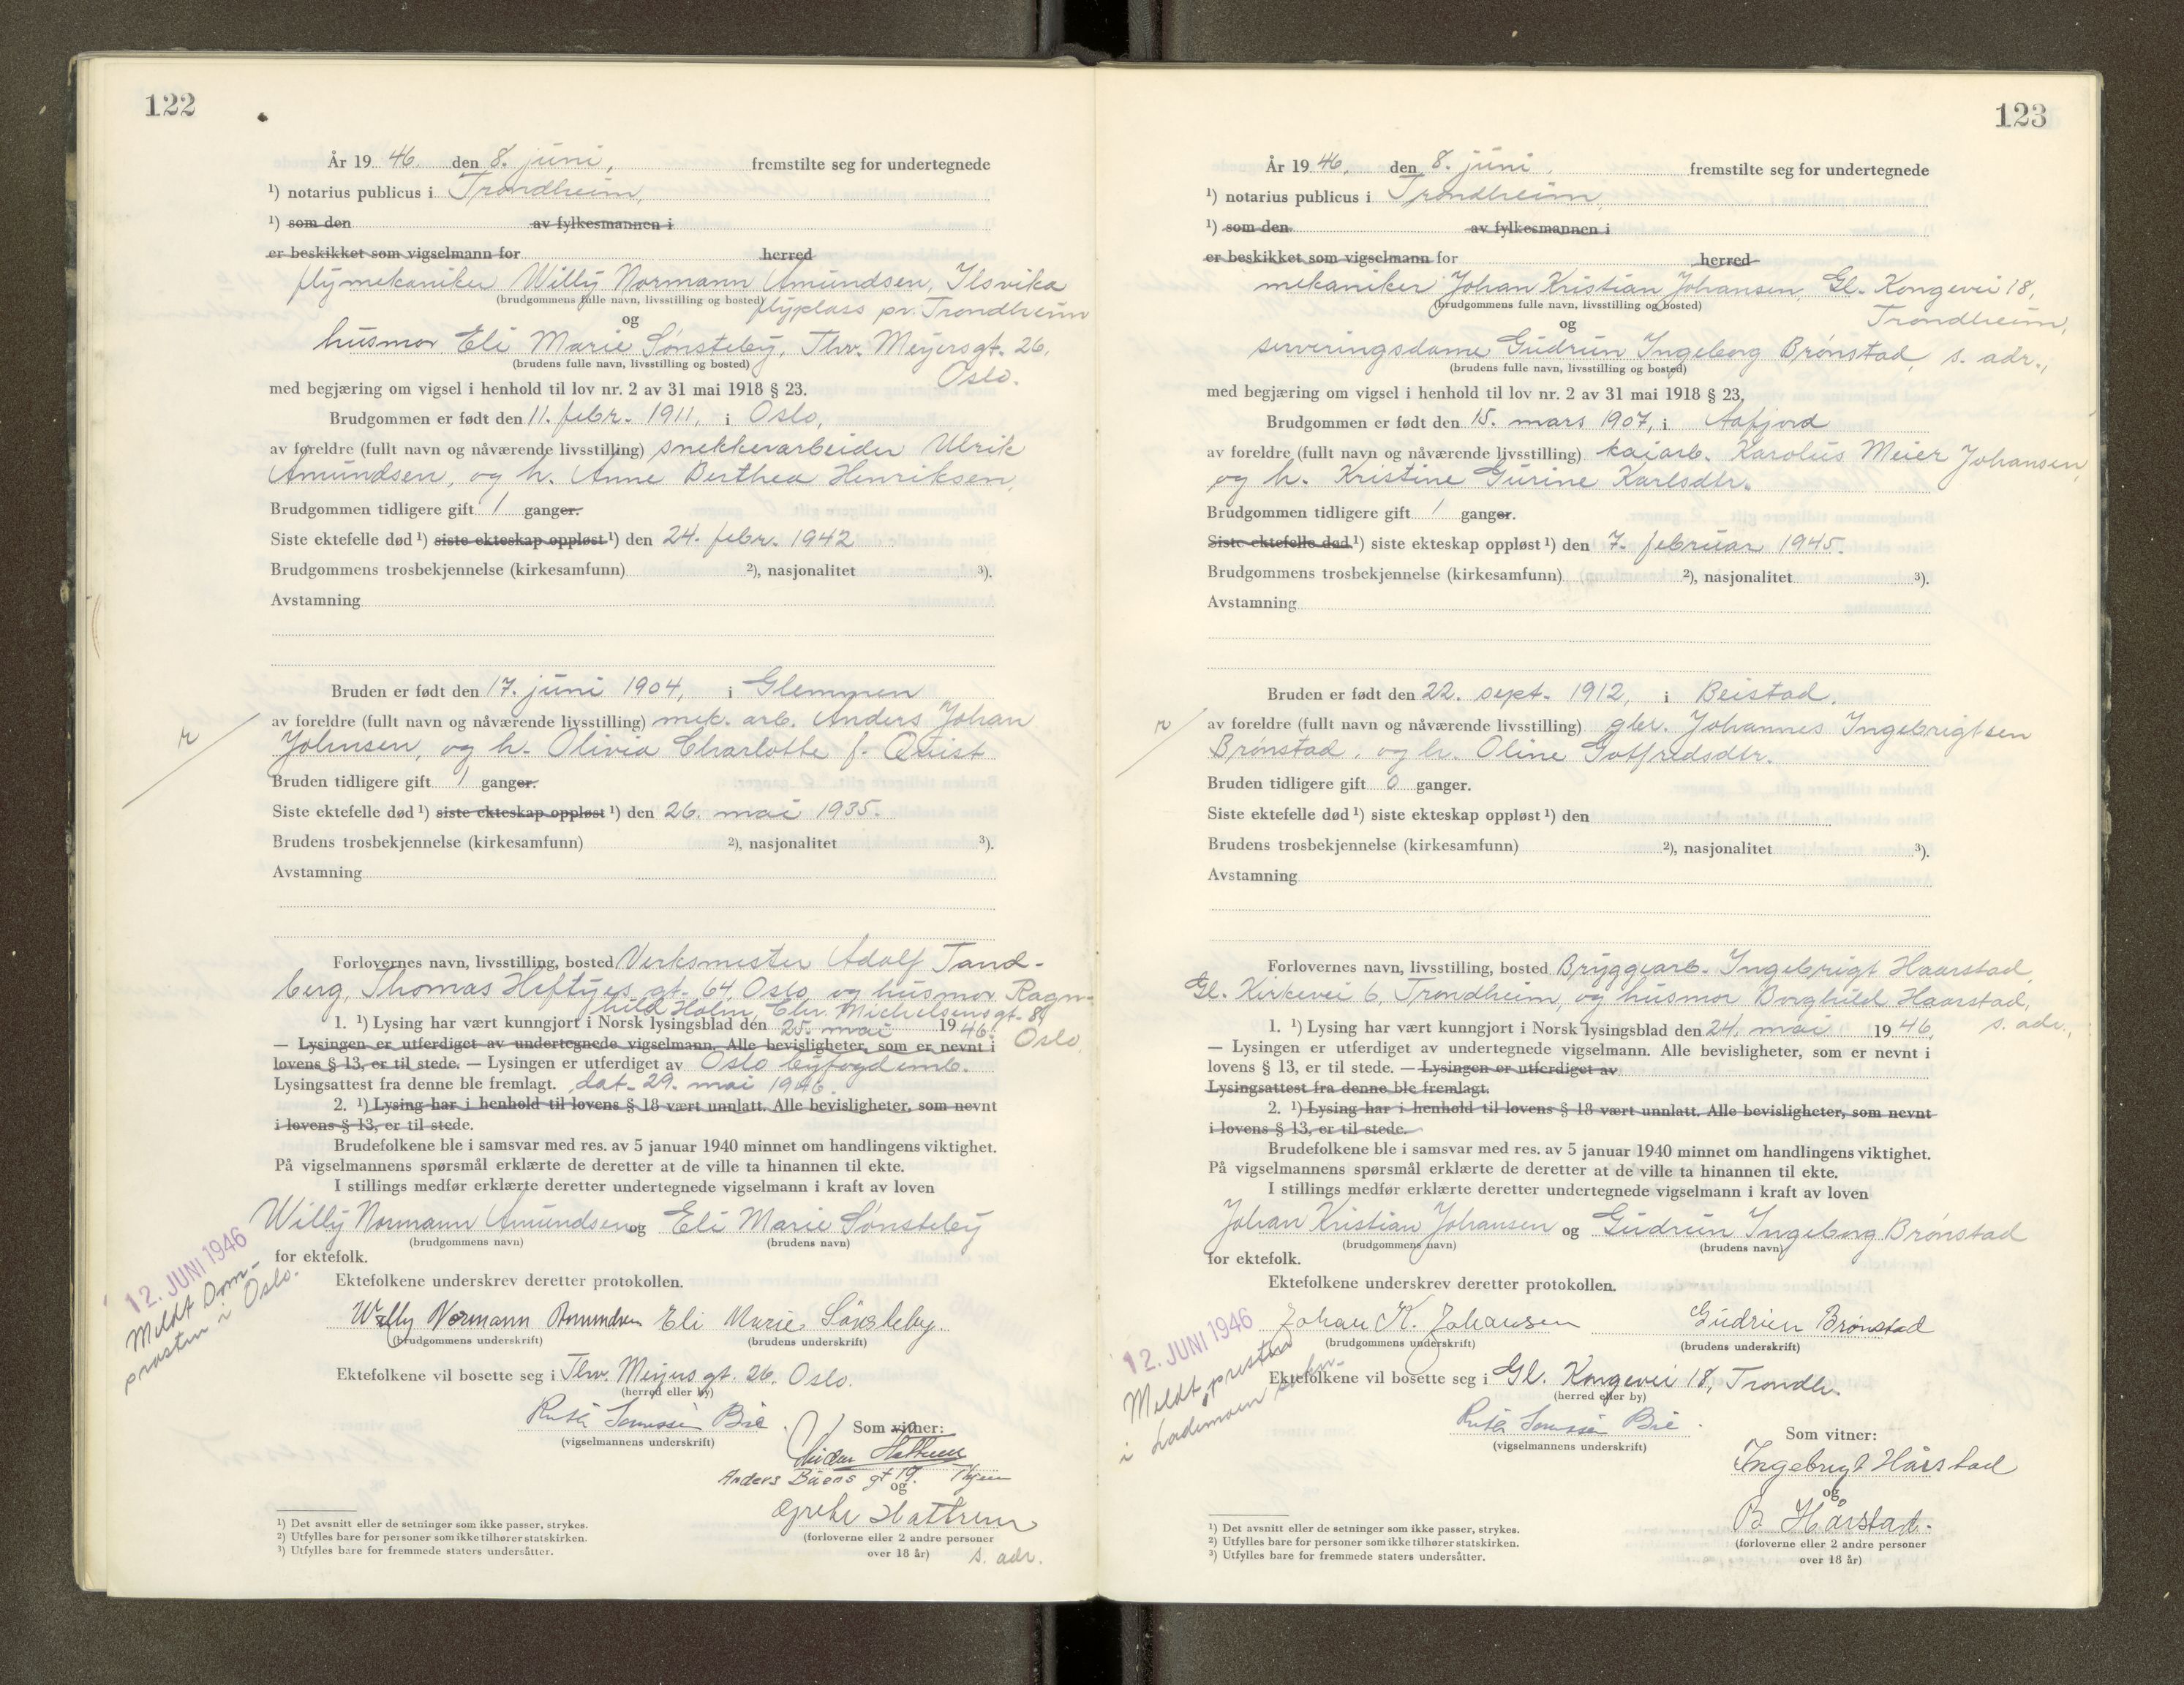 122
År 19 46. den 8. juni, fremstilte seg for undertegnede
¹) notarius publicus i Trondheim,
¹) som den av fylkesmannen i
er beskikket som vigselmann for herred
flymekaniker Willy Normann Amundsen, Ilsvika
(brudgommens fulle navn, livsstilling og bosted) flyplass pr. Trondheim
og
husmor Eli Marie Sønsteby, Thv. Meyersgt. 26,
(brudens fulle navn, livsstilling og bosted) Oslo.
med begjæring om vigsel i henhold til lov nr. 2 av 31 mai 1918 § 23.
Brudgommen er født den 11. febr. 1911, i Oslo,
av foreldre (fullt navn og nåværende livsstilling) snekkerarbeider Ulrik
Amundsen, og h. Anne Berthea Henriksen,
Brudgommen tidligere gift 1 ganger.
Siste ektefelle død ¹) siste ekteskap oppløst ¹) den 24. febr. 1942
Brudgommens trosbekjennelse (kirkesamfunn) ²), nasjonalitet ³).
Avstamning
Bruden er født den 17. juni 1904, i Glemmen
av foreldre (fullt navn og nåværende livsstilling) mek. arb. Anders Johan
Johnsen, og h. Olivia Charlotte f. Quist
Bruden tidligere gift 1 ganger.
Siste ektefelle død ¹) siste ekteskap oppløst ¹) den 26. mai 1935.
Brudens trosbekjennelse (kirkesamfunn) ²), nasjonalitet ³).
Avstamning
Forlovernes navn, livsstilling, bosted Verksmester Adolf Tand-
berg, Thomas Heftyes gt. 64, Oslo og husmor Ragn-
hild Holm, Chr. Michelsensgt. 89
1. ¹) Lysing har vært kunngjort i Norsk lysingsblad den 25. mai 19 46.
Oslo.
— Lysingen er utferdiget av undertegnede vigselmann. Alle bevisligheter, som er nevnt i
lovens § 13, er til stede. — Lysingen er utferdiget av Oslo byfogdemb.
Lysingsattest fra denne ble fremlagt. dat. 29. mai 1946.
2. ¹) Lysing har i henhold til lovens § 18 vært unnlatt. Alle bevisligheter, som nevnt
i lovens § 13, er til stede.
Brudefolkene ble i samsvar med res. av 5 januar 1940 minnet om handlingens viktighet.
På vigselmannens spørsmål erklærte de deretter at de ville ta hinannen til ekte.
I stillings medfør erklærte deretter undertegnede vigselmann i kraft av loven
Willy Normann Amundsen og Eli Marie Sønsteby
(brudgommens navn) (brudens navn)
for ektefolk.
12. JUNI 1946
Meldt Dom-
prosten i Oslo.
Ektefolkene underskrev deretter protokollen.
Willy Normann Amundsen Eli Marie Sønsteby.
(brudgommens underskrift) (brudens underskrift)
Ektefolkene vil bosette seg i Thv. Meyersgt. 26, Oslo.
(herred eller by)
Bie
(vigselmannens underskrift)
Som vitner:
Hattrem
Anders Buens gt 19.
og
Grethe Hattrem
(forloverne eller 2 andre personer
over 18 år) s. adr.
¹) Det avsnitt eller de setninger som ikke passer, strykes.
²) Utfylles bare for personer som ikke tilhører statskirken.
³) Utfylles bare for fremmede staters undersåtter.
123
År 19 46. den 8. juni, fremstilte seg for undertegnede
¹) notarius publicus i Trondheim,
¹) som den av fylkesmannen i
er beskikket som vigselmann for herred
mekaniker Johan Kristian Johansen, Gl. Kongevei 18,
(brudgommens fulle navn, livsstilling og bosted) Trondheim,
og
serveringsdame Gudrun Ingeborg Brønstad, s. adr.,
(brudens fulle navn, livsstilling og bosted)
med begjæring om vigsel i henhold til lov nr. 2 av 31 mai 1918 § 23.
Brudgommen er født den 15. mars 1907, i Aafjord
av foreldre (fullt navn og nåværende livsstilling) kaiarb. Karolus Meier Johansen,
og h. Kristine Gurine Karlsdtr.
Brudgommen tidligere gift 1 ganger.
Siste ektefelle død ¹) siste ekteskap oppløst ¹) den 7. februar 1945.
Brudgommens trosbekjennelse (kirkesamfunn) ²), nasjonalitet ³).
Avstamning
Bruden er født den 22. sept. 1912, i Beistad.
av foreldre (fullt navn og nåværende livsstilling) gbr. Johannes Ingebrigtsen
Brønstad, og h. Oline Gotfredsdtr.
Bruden tidligere gift 0 ganger.
Siste ektefelle død ¹) siste ekteskap oppløst ¹) den
Brudens trosbekjennelse (kirkesamfunn) ²), nasjonalitet ³).
Avstamning
Forlovernes navn, livsstilling, bosted Bryggearb. Ingebrigt Haarstad,
Gl. Kirkevei 6, Trondheim, og husmor Borghild Haarstad,
s. adr.,
1. ¹) Lysing har vært kunngjort i Norsk lysingsblad den 24. mai 19 46,
— Lysingen er utferdiget av undertegnede vigselmann. Alle bevisligheter, som er nevnt i
lovens § 13, er til stede. — Lysingen er utferdiget av
Lysingsattest fra denne ble fremlagt.
2. ¹) Lysing har i henhold til lovens § 18 vært unnlatt. Alle bevisligheter, som nevnt
i lovens § 13, er til stede.
Brudefolkene ble i samsvar med res. av 5 januar 1940 minnet om handlingens viktighet.
På vigselmannens spørsmål erklærte de deretter at de ville ta hinannen til ekte.
I stillings medfør erklærte deretter undertegnede vigselmann i kraft av loven
Johan Kristian Johansen og Gudrun Ingeborg Brønstad
(brudgommens navn) (brudens navn)
for ektefolk.
Ektefolkene underskrev deretter protokollen.
12. JUNI 1946
Meldt presten
i Lademoen
Johan K. Johansen Gudrun Brønstad
(brudgommens underskrift) (brudens underskrift)
Ektefolkene vil bosette seg i Gl. Kongevei 18, Trondh.
(herred eller by)
Bie
(vigselmannens underskrift)
Som vitner:
Ingebrigt Hårstad
og
B Hårstad.
(forloverne eller 2 andre personer
over 18 år)
¹) Det avsnitt eller de setninger som ikke passer, strykes.
²) Utfylles bare for personer som ikke tilhører statskirken.
³) Utfylles bare for fremmede staters undersåtter.